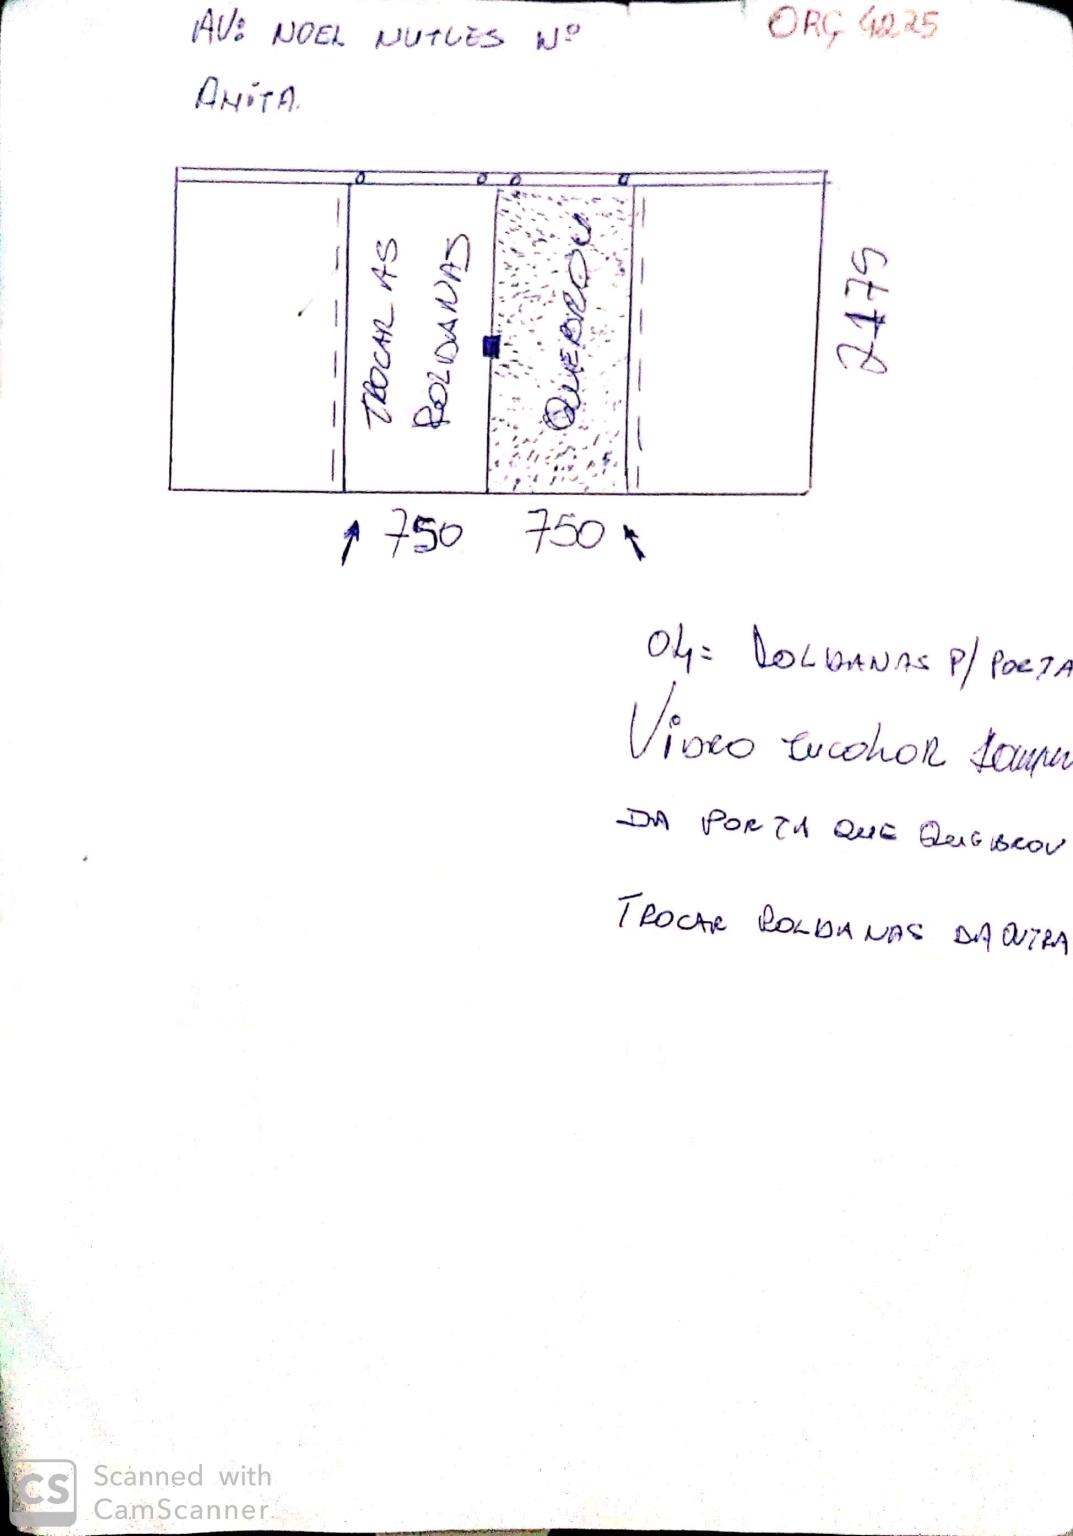 AV: NOEL NUTLES Nº
ORÇ 4225
ANITA.
TROCAR AS
ROLDANAS
QUEBROU
2175
750 750
04= ROLDANAS P/ PORTA
VIDRO INCOLOR
DA PORTA QUE QUEBROU
TROCAR ROLDANAS DA OUTRA
CS Scanned with
CamScanner